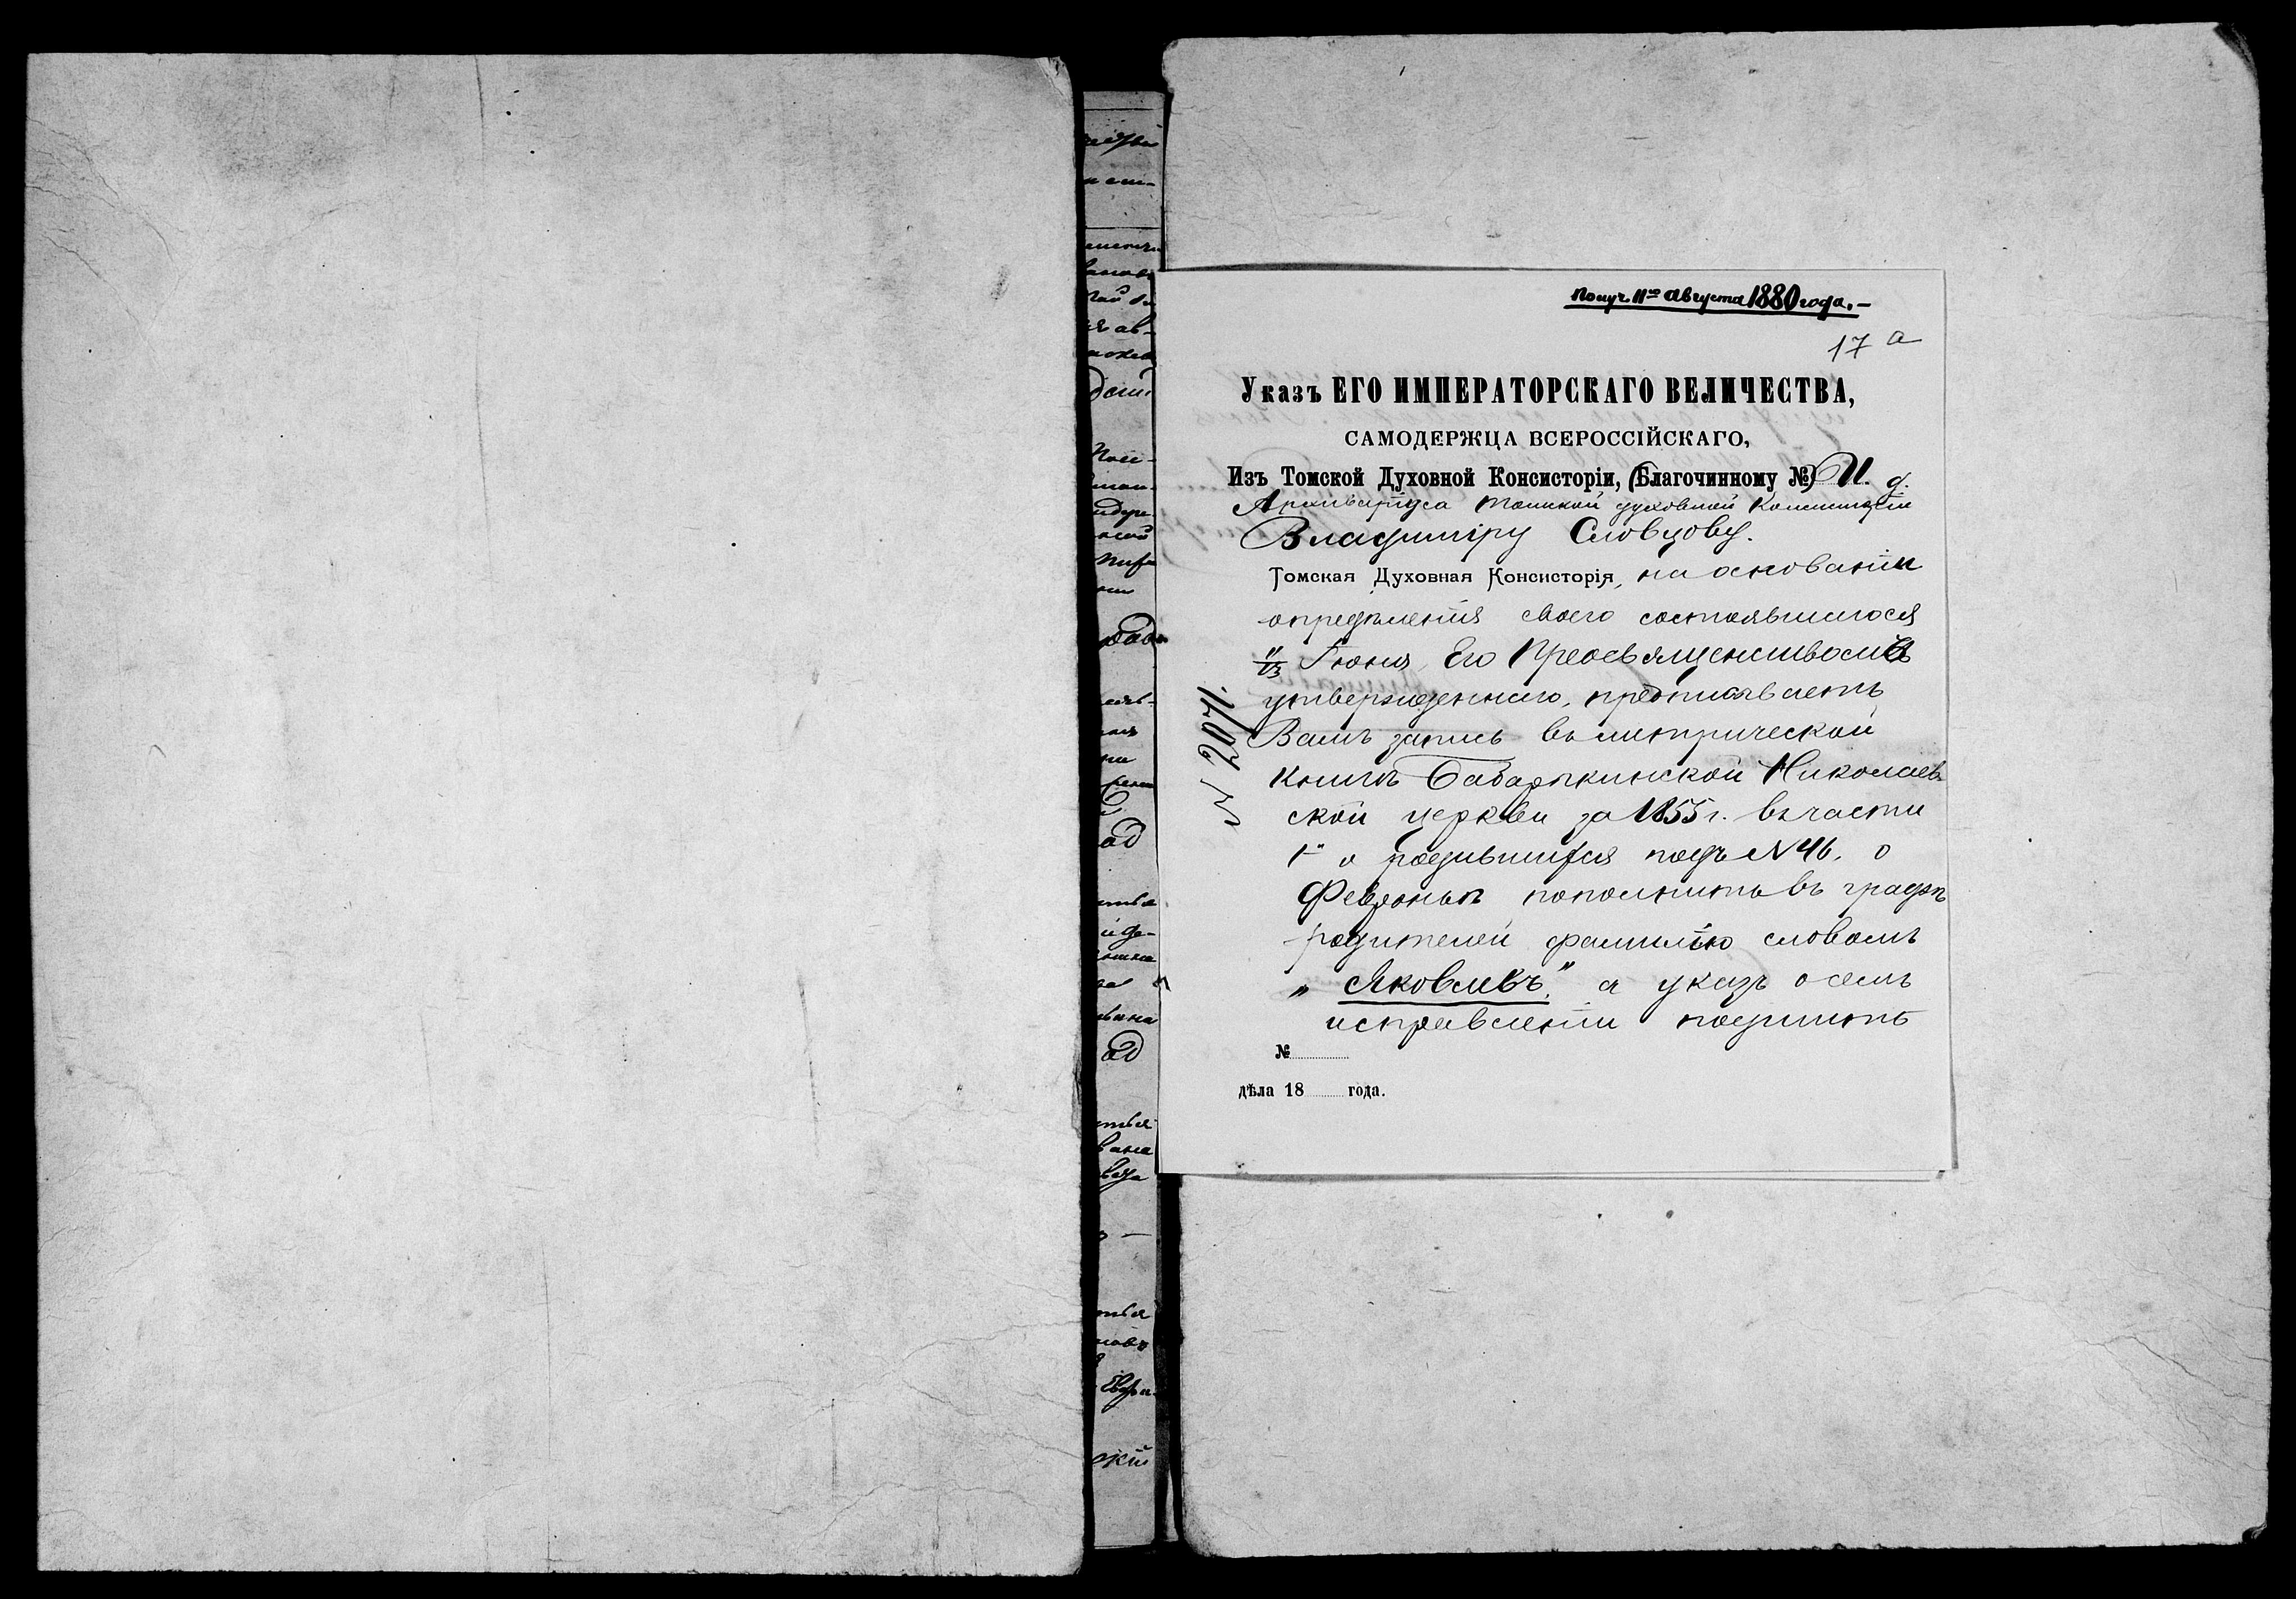 Получ. 11го Августа 1880 года. —
17 а
Указъ ЕГО ИМПЕРАТОРСКАГО ВЕЛИЧЕСТВА,
САМОДЕРЖЦА ВСЕРОССІЙСКАГО,
Изъ Томской Духовной Консисторіи, (Благочинному №) И. д.
Архиваріуса Томской духовной Консисторіи
Владиміру Словцову.
Томская Духовная Консисторія, на основаніи
опредѣленія своего состоявшагося
11/13 Іюня, Его Преосвященствомъ
утвержденнаго, предписываетъ
Вамъ запись въ метрической
книгѣ Бабарыкинской Николаев
ской церкви за 1855 г. въ части
1й о родившихся подъ № 46. о
Февроньѣ пополнить въ графѣ
родителей фамилію словомъ
„Яковлевъ“, а указъ о семъ
исправленіи подшить
№ 2071.
№
дѣла 18 года.